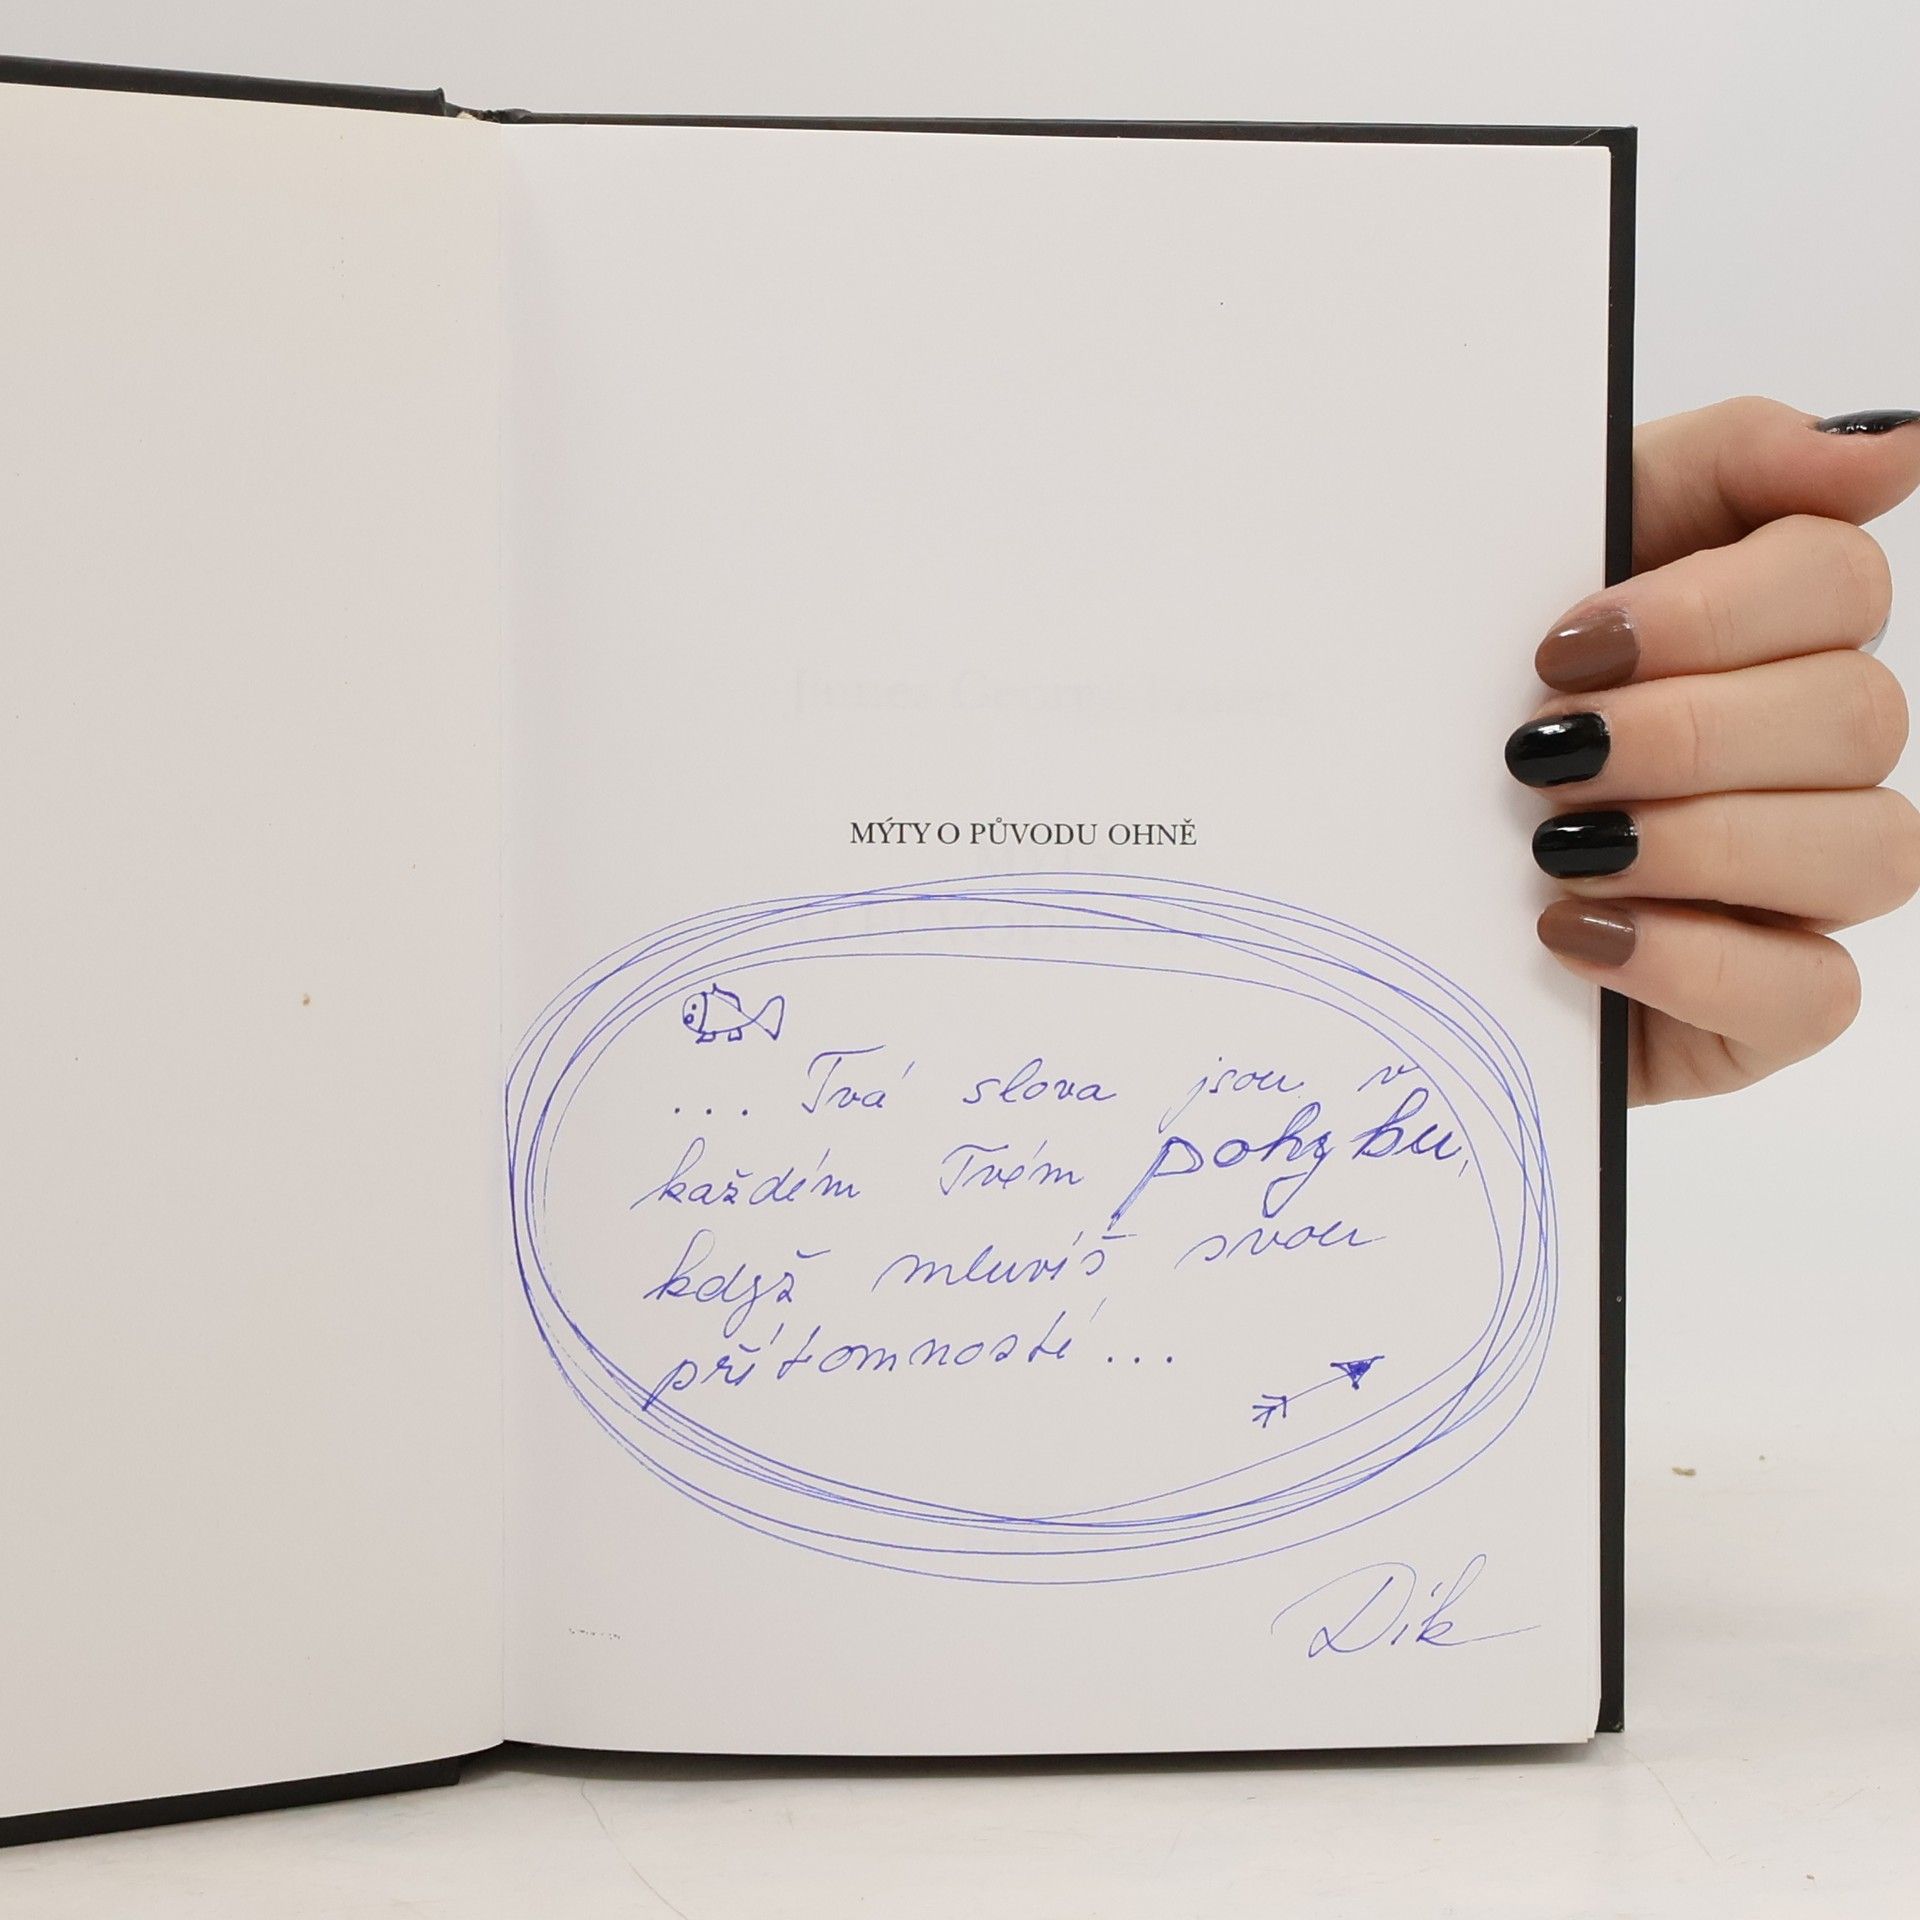 MÝTY O PŮVODU OHNĚ
... Tvá slova jsou v
každém Tvém pohybu,
když mluvíš svou
přítomností...
Dík